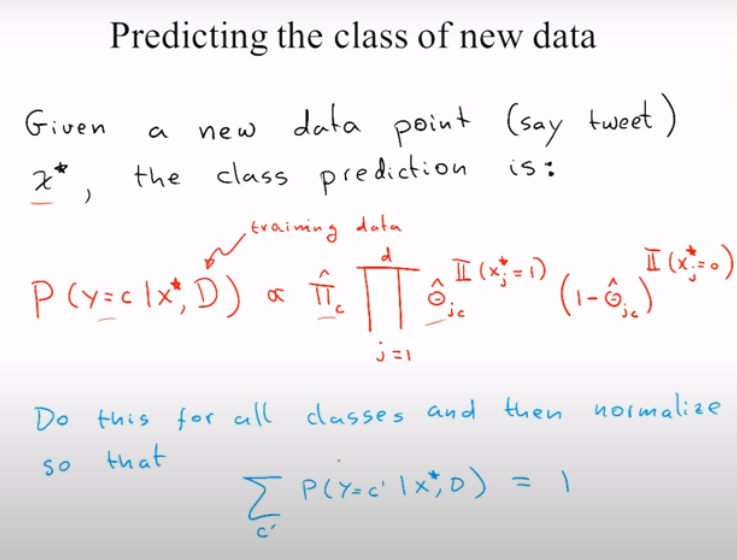 Predicting the class of new data
Given a new data point (say tweet)
x*, the class prediction is:
training data
P(y=c|x*,D) ∝ π̂_c ∏_{j=1}^{d} θ̂_{jc}^{𝕀(x*_j=1)} (1-θ̂_{jc})^{𝕀(x*_j=0)}
Do this for all classes and then normalize
so that
∑_{c'} P(y=c'|x*,D) = 1